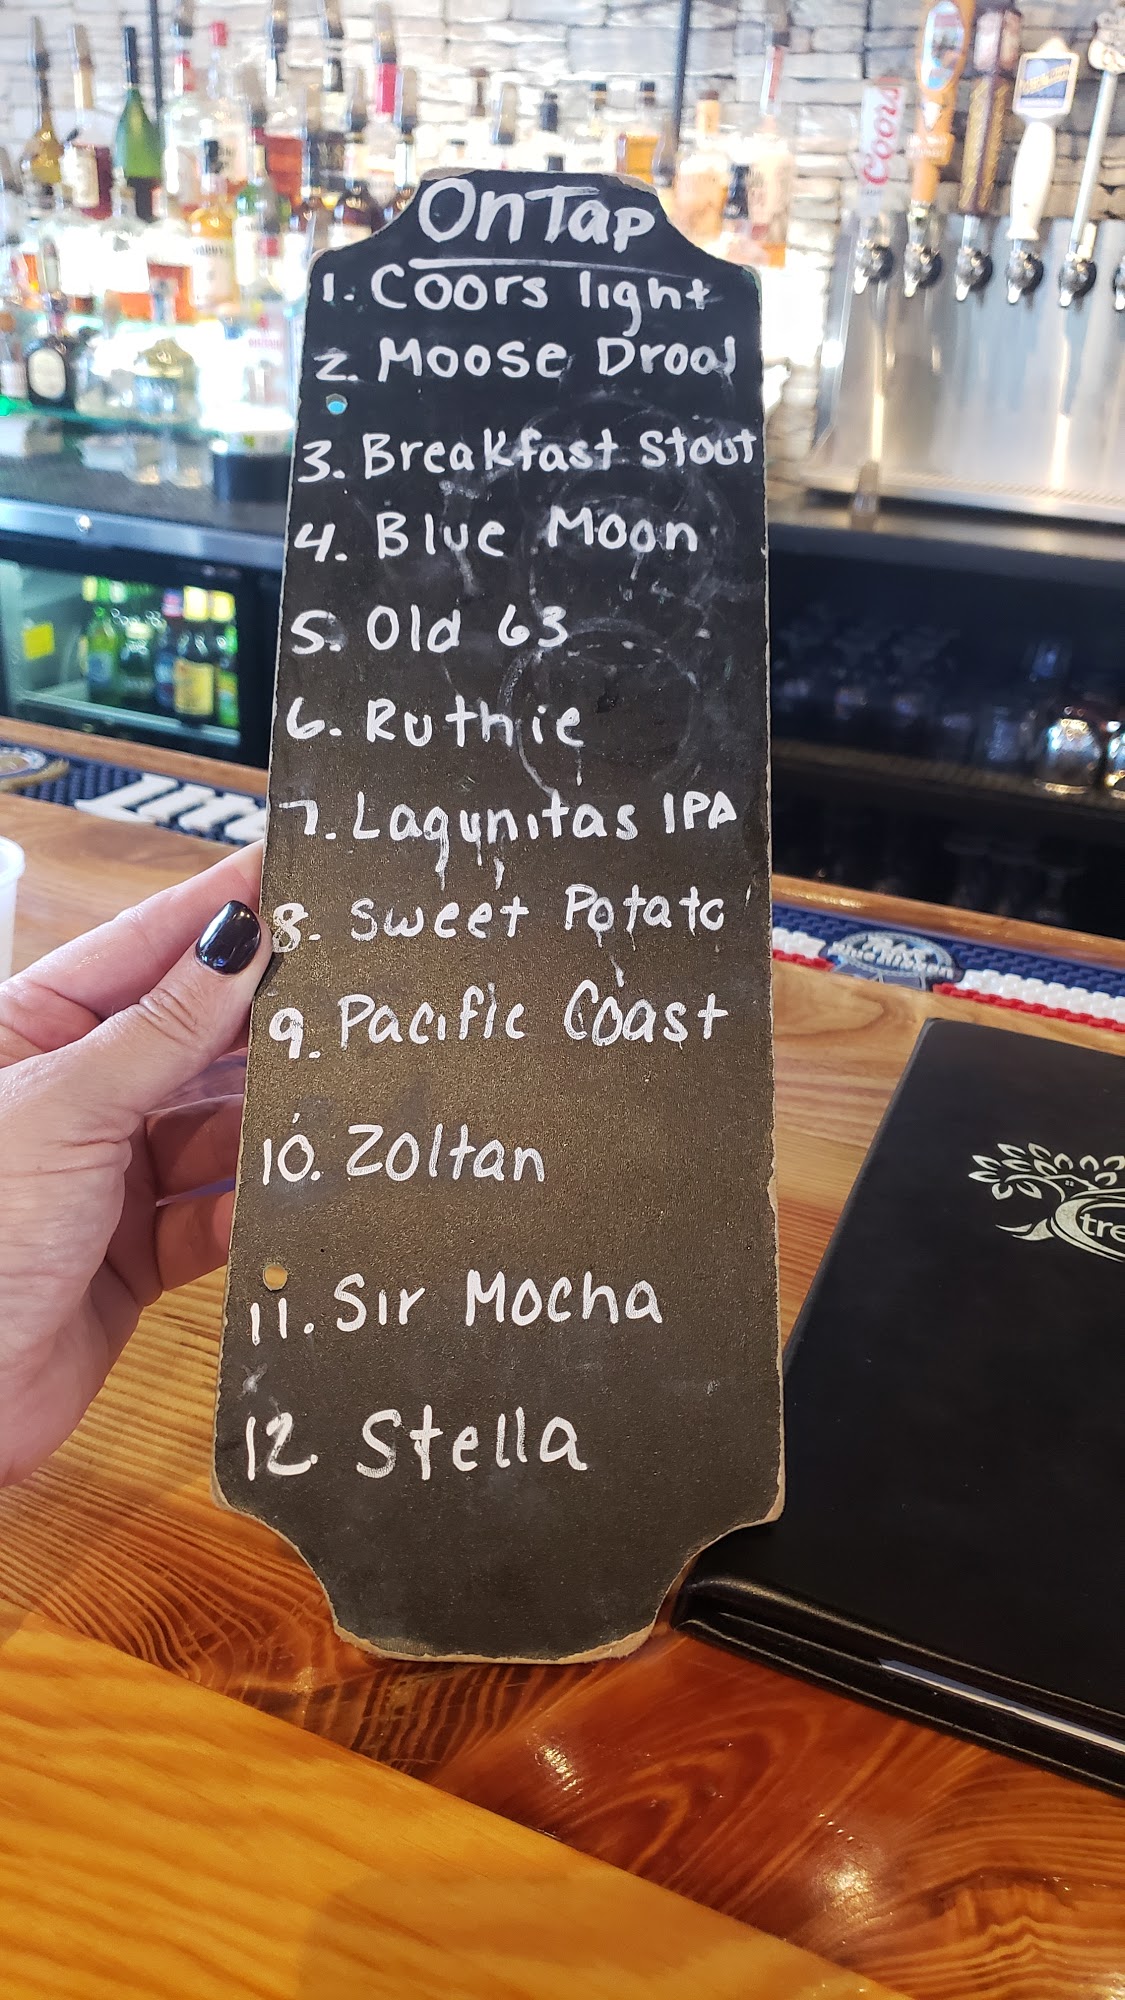 Coors
On Tap
1. Coors light
2. Moose Drool
3. Breakfast Stout
4. Blue Moon
5. Old 63
6. Ruthie
7. Lagunitas IPA
8. Sweet Potato
9. Pacific Coast
10. Zoltan
11. Sir Mocha
12. Stella
Lite
Blue Ribbon
tre